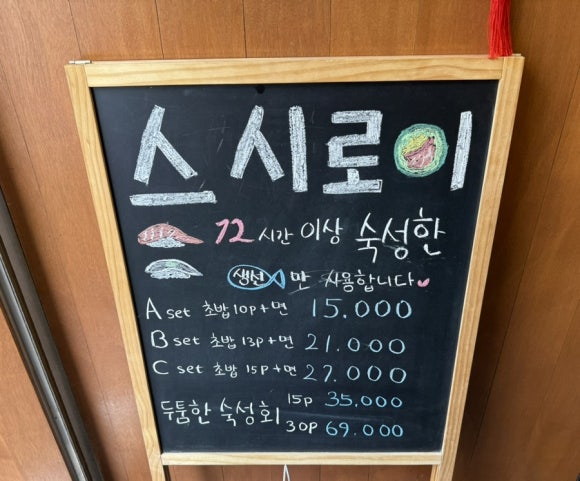 스시로이
72시간 이상 숙성한
생선만 사용합니다
A set 초밥 10p+면 15.000
B set 초밥 13p+면 21.000
C set 초밥 15p+면 27.000
두툼한 숙성회 15p 35,000
30p 69.000